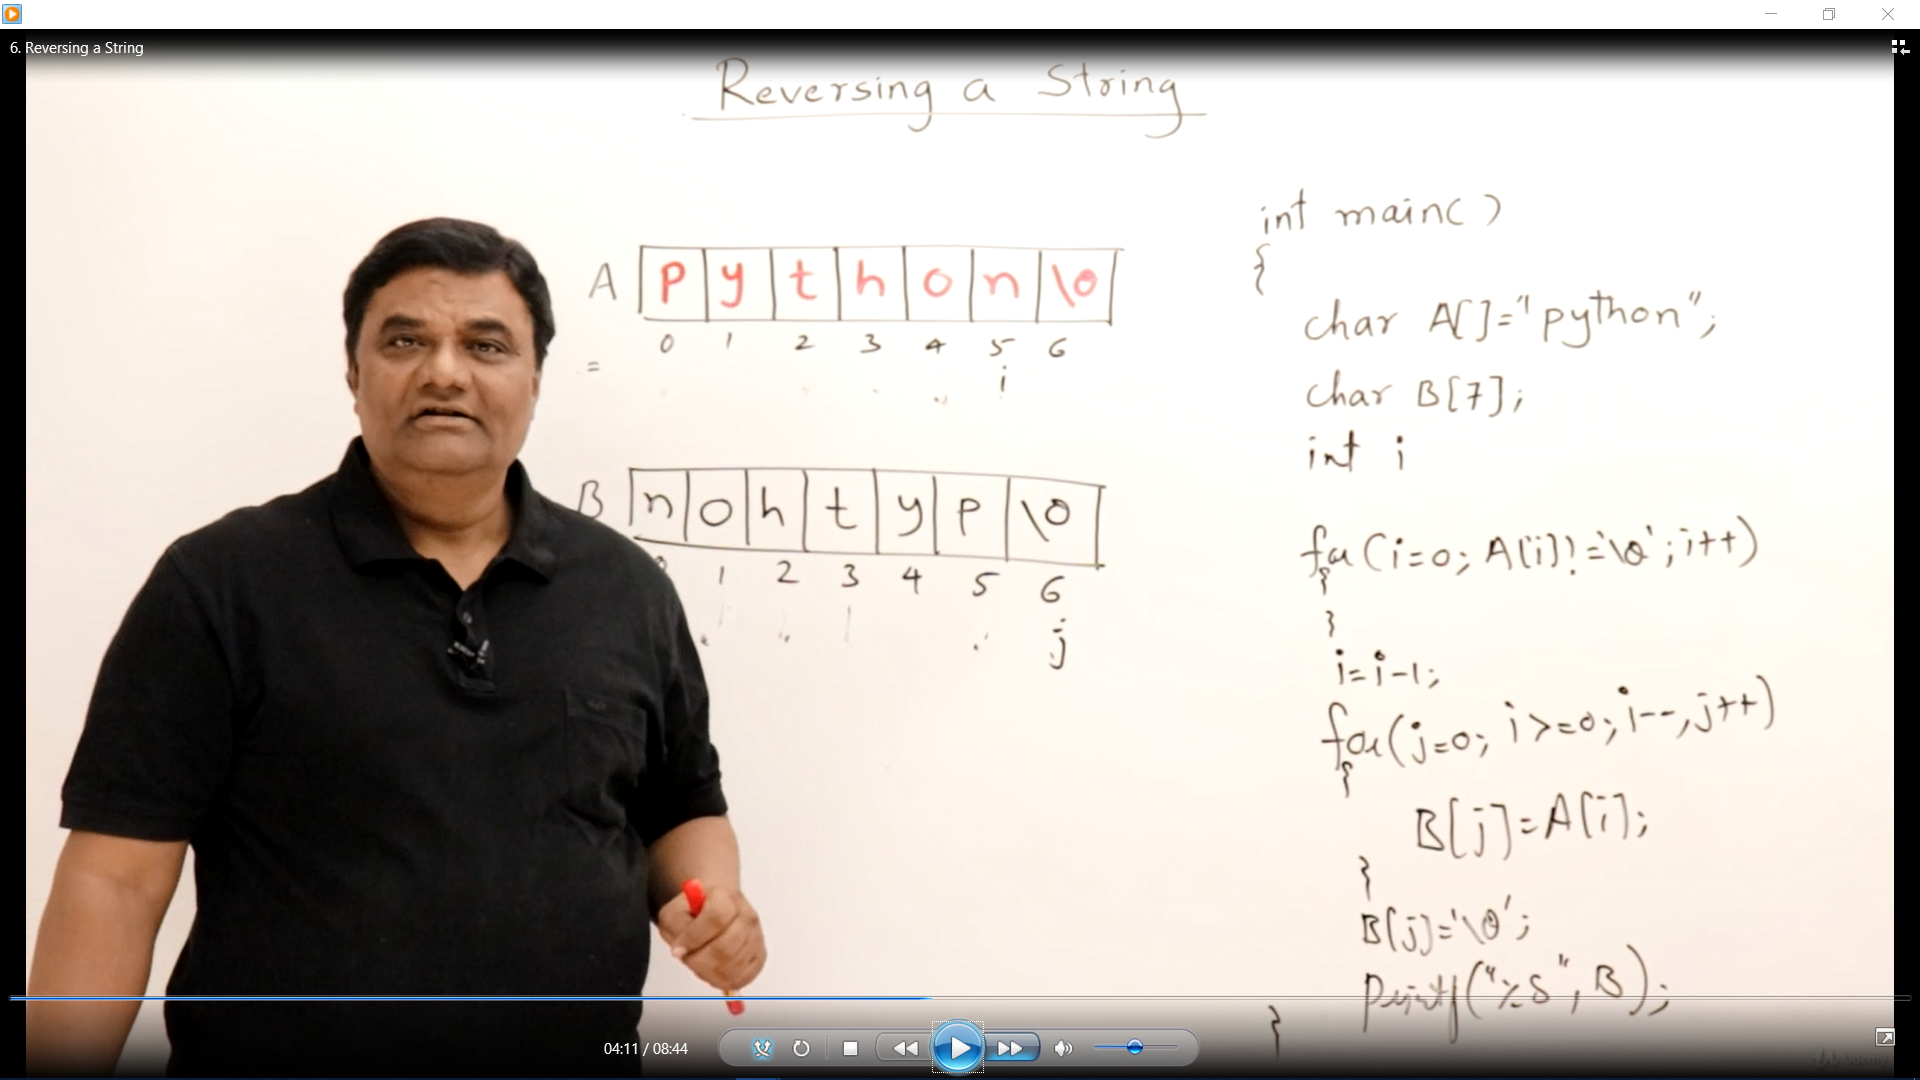 6. Reversing a String
Reversing a String
A p y t h o n \0
0 1 2 3 4 5 6
=
i
B n o h t y p \0
0 1 2 3 4 5 6
j
int main()
{
char A[]="python";
char B[7];
int i
for(i=0; A[i]!='\0'; i++)
{
}
i=i-1;
for(j=0; i>=0; i--, j++)
{
B[j]=A[i];
}
B[j]='\0';
printf("%s", B);
}
04:11 / 08:44
Udemy